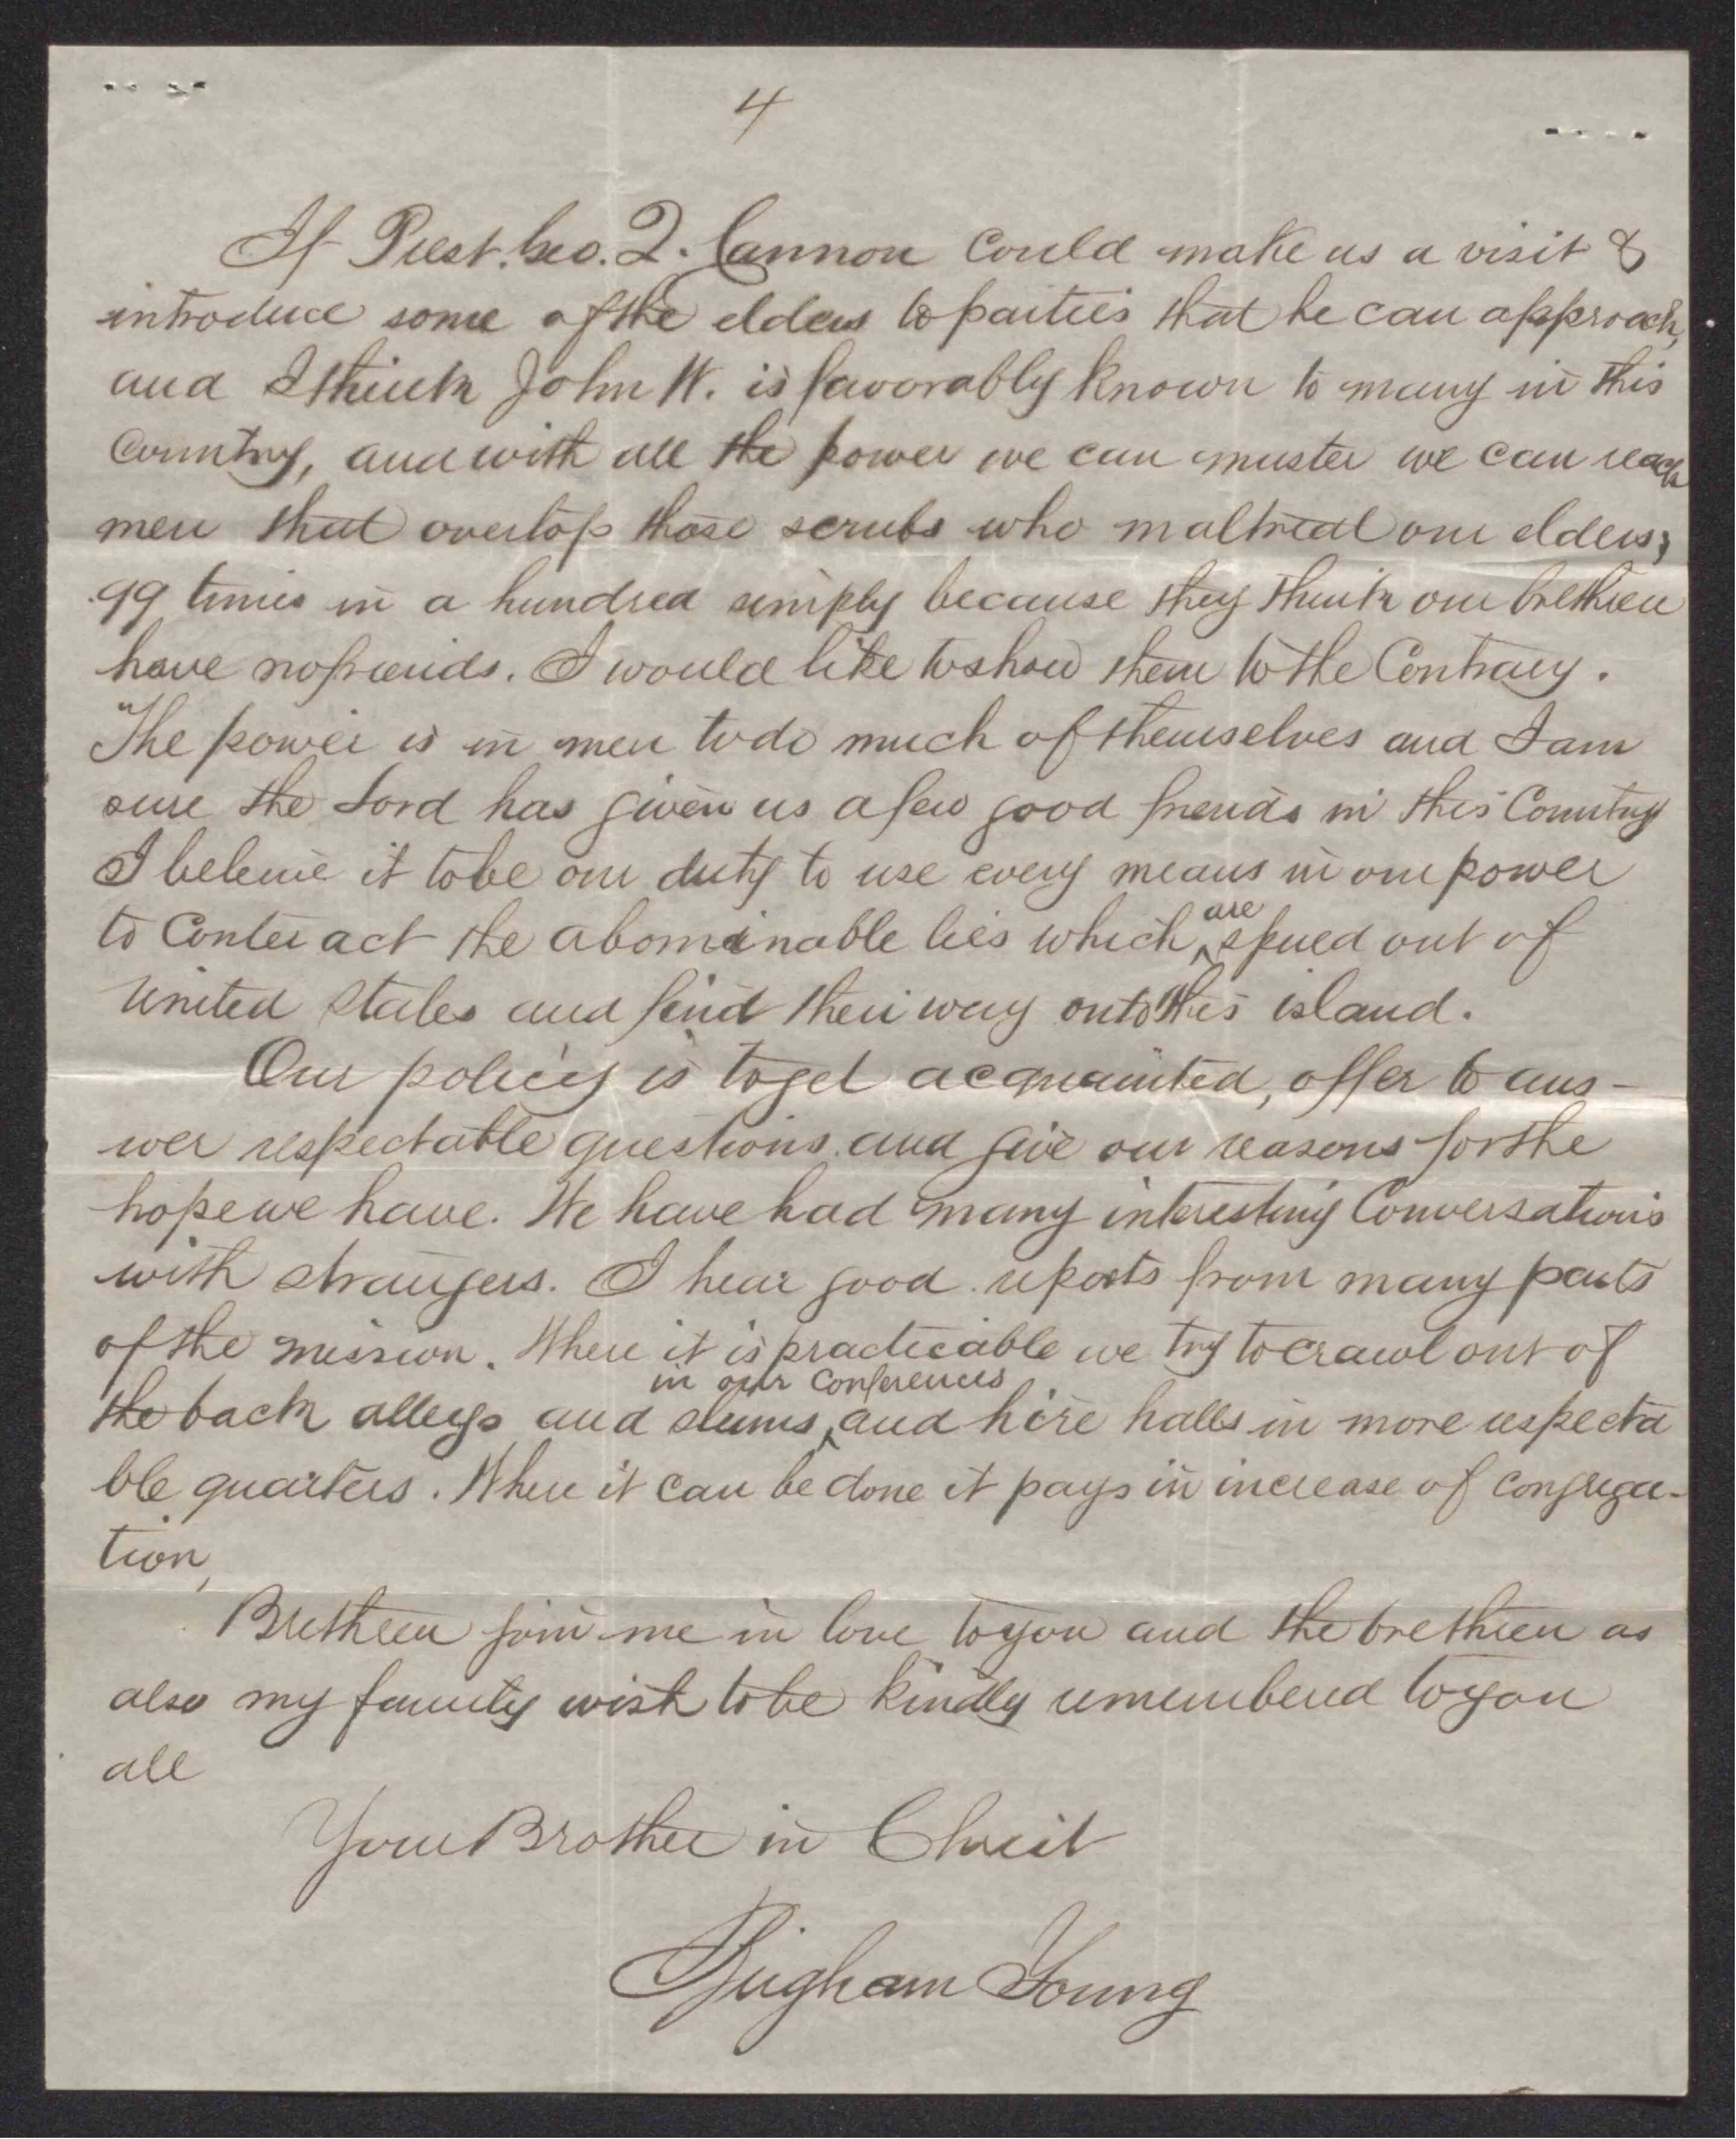 4
If Prest. Geo. Q. Cannon could make us a visit &
introduce some of the elders to parties that he can approach,
and I think John W. is favorably known to many in this
Country, and with all the power we can muster we can reach
men that overtop those scrubs who maltreat our elders;
99 times in a hundred simply because they think our brethren
have no friends. I would like to show them to the Contrary.
The power is in men to do much of themselves and I am
sure the Lord has given us a few good friends in this Country
I beleive it to be our duty to use every means in our power
to Conter act the abominable lies which are spued out of
United States and find their way onto this island.
Our policy is to get acquainted, offer to ans-
wer respectable questions and give our reasons for the
hope we have. We have had many interesting Conversations
with strangers. I hear good reports from many parts
of the mission. Where it is practicable we try to crawl out of
the back alleys and slums in our Conferences, and hire halls in more respecta
ble quarters. Where it can be done it pays in increase of congrega-
tion,
Brethren join me in love to you and the brethren as
also my family wish to be kindly remembered to you
all
Your Brother in Christ
Brigham Young